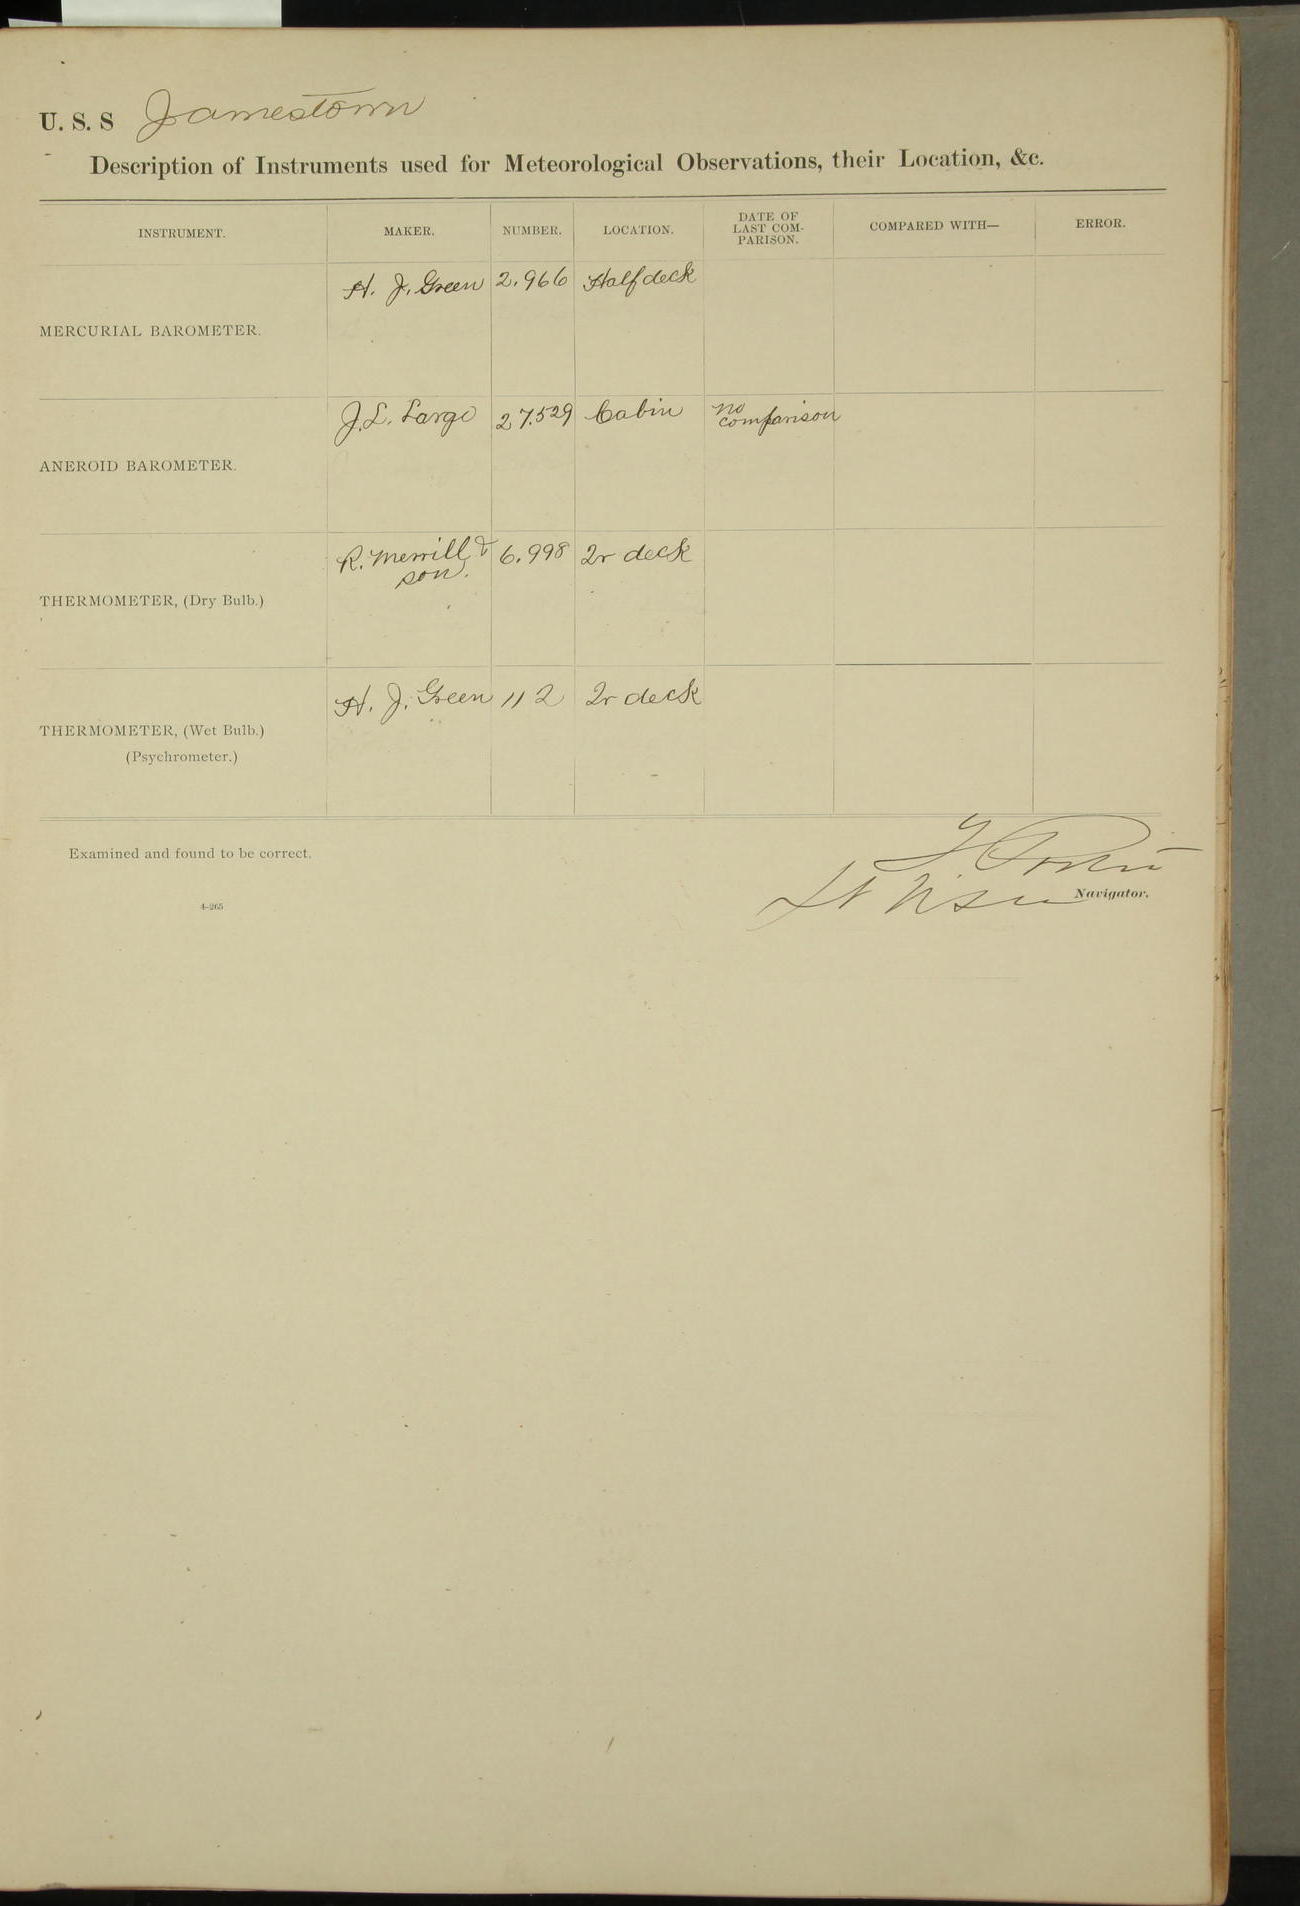 U. S. S Jamestown
Description of Instruments used for Meteorological Observations, their Location, &c.
INSTRUMENT. MAKER. NUMBER. LOCATION. DATE OF LAST COM- PARISON. COMPARED WITH— ERROR.
MERCURIAL BAROMETER. H. J. Green 2.966 Half deck
ANEROID BAROMETER. J. L. Large 27.529 Cabin no comparison
THERMOMETER, (Dry Bulb.) R. Merrill & son. 6.998 2r deck
THERMOMETER, (Wet Bulb.) H. J. Green 112 2r deck
(Psychrometer.)
Examined and found to be correct.
Navigator.
4-265